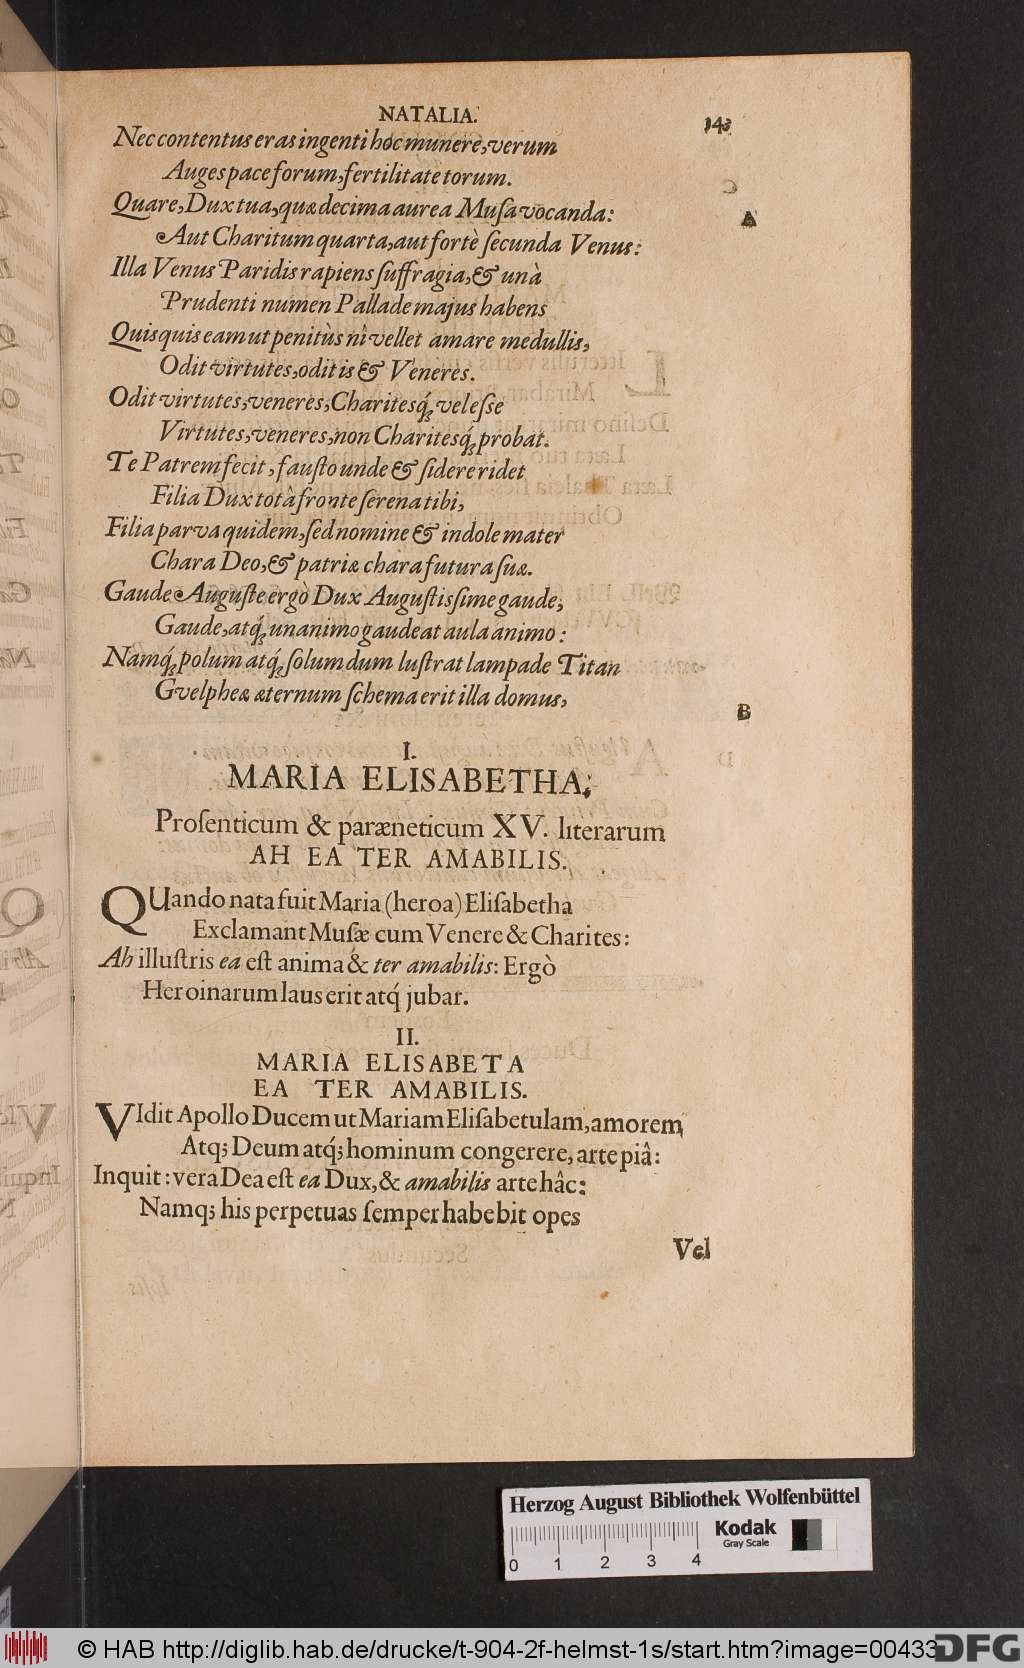 NATALIA. 143
Nec contentus eras ingenti hoc munere, verum
Auges pace forum, fertilitate torum.
Quare, Dux tua, quæ decima aurea Musa vocanda:
A
Aut Charitum quarta, aut fortè secunda Venus:
Illa Venus Paridis rapiens suffragia, & unà
Prudenti numen Pallade majus habens
Quisquis eam ut penitùs nî vellet amare medullis,
Odit virtutes, odit is & Veneres.
Odit virtutes, veneres, Charitesq́; vel esse
Virtutes, veneres, non Charitesq́; probat.
Te Patrem fecit, fausto unde & sidere ridet
Filia Dux totâ fronte serena tibi,
Filia parva quidem, sed nomine & indole mater
Chara Deo, & patriæ chara futura suæ.
Gaude Auguste ergò Dux Augustissime gaude,
Gaude, atq́; unanimo gaudeat aula animo:
Namq́; polum atq́; solum dum lustrat lampade Titan
Gvelpheæ æternum schema erit illa domus,
B
I.
MARIA ELISABETHA,
Prosenticum & paræneticum XV. literarum
AH EA TER AMABILIS.
QUando nata fuit Maria (heroa) Elisabetha
Exclamant Musæ cum Venere & Charites:
Ah illustris ea est anima & ter amabilis: Ergò
Heroinarum laus erit atq́ jubar.
II.
MARIA ELISABETA
EA TER AMABILIS.
VIdit Apollo Ducem ut Mariam Elisabetulam, amorem
Atq; Deum atq́; hominum congerere, arte piâ:
Inquit: vera Dea est ea Dux, & amabilis arte hâc:
Namq; his perpetuas semper habebit opes
Vel
Herzog August Bibliothek Wolfenbüttel
Kodak
Gray Scale
0 1 2 3 4
© HAB http://diglib.hab.de/drucke/t-904-2f-helmst-1s/start.htm?image=00433
DFG